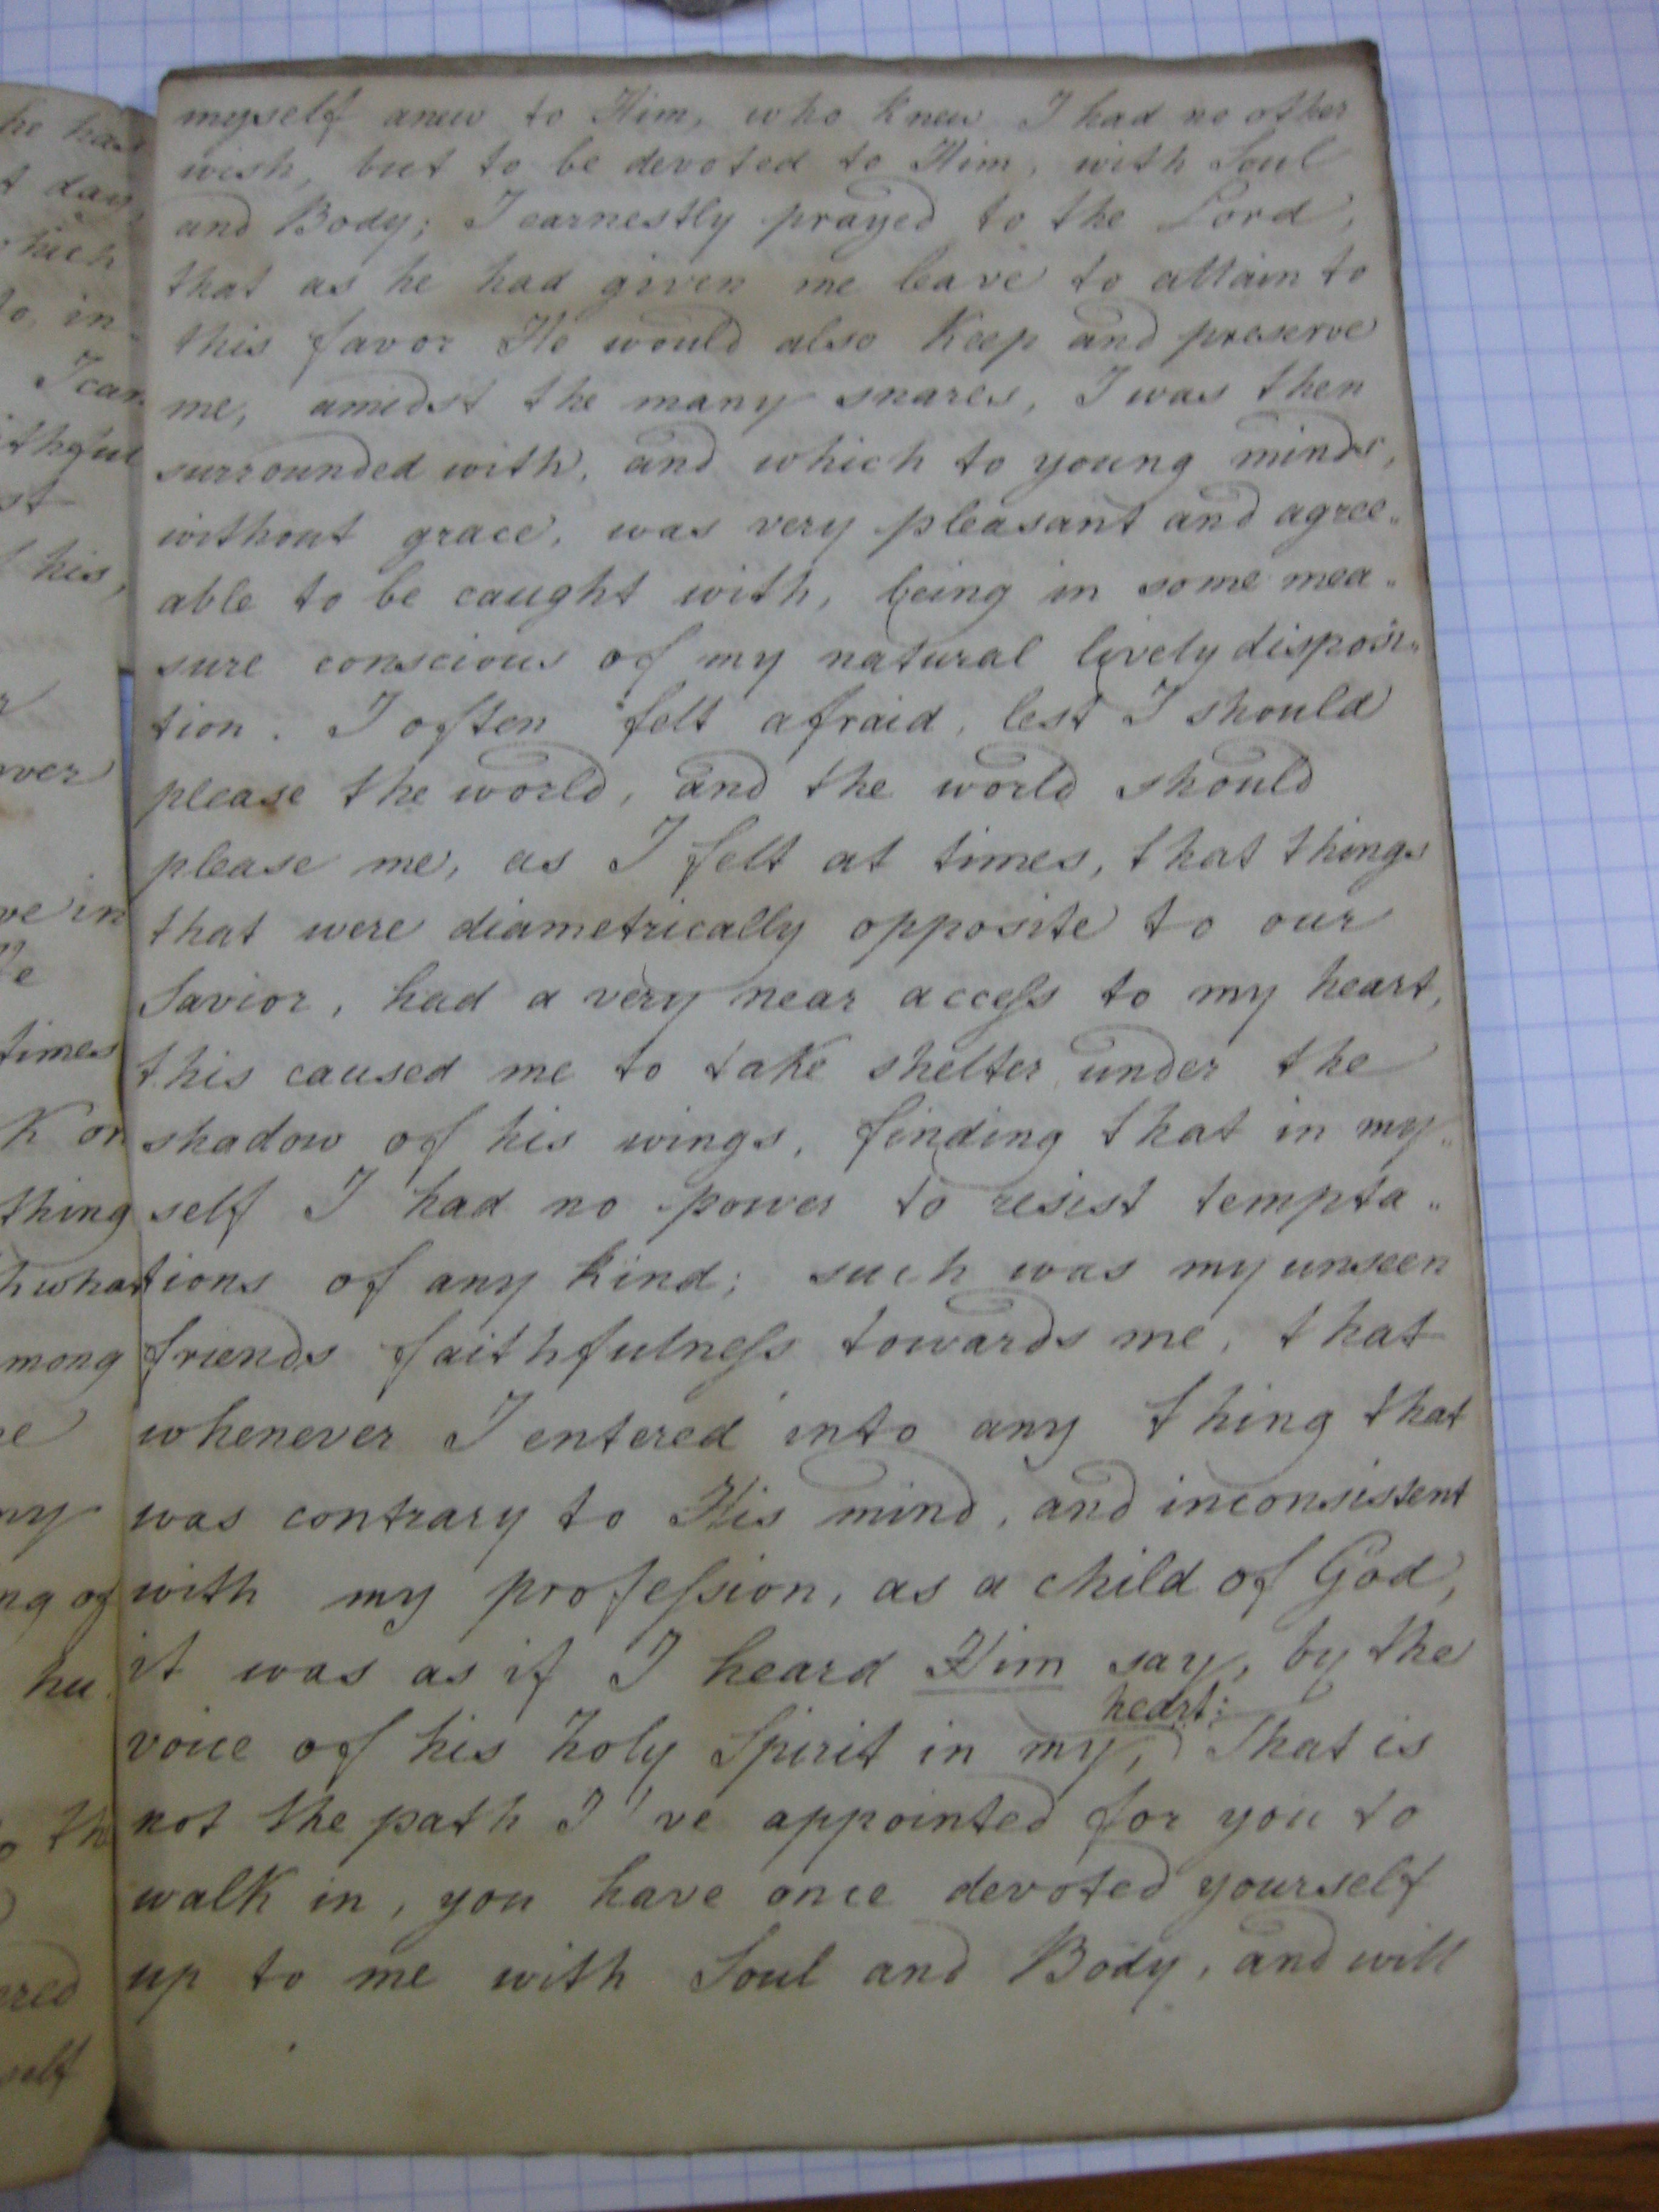 myself anew to Him, who knew I had no other
wish, but to be devoted to Him, with Soul
and Body; I earnestly prayed to the Lord,
that as he had given me leave to attain to
this favor He would also Keep and preserve
me, amidst the many snares, I was then
surrounded with, and which to young minds,
without grace, was very pleasant and agree„
able to be caught with, being in some mea„
sure conscious of my natural lively disposi„
tion. I often felt afraid, lest I should
please the world, and the world should
please me, as I felt at times, that things
that were diametrically opposite to our
Savior, had a very near access to my heart,
this caused me to take shelter under the
shadow of his wings, finding that in my„
self I had no power to resist tempta„
tions of any kind; such was my unseen
friends faithfulness towards me, that
whenever I entered into any thing that
was contrary to His mind, and inconsistent
with my profession, as a child of God,
it was as if I heard Him say, by the
heart:
voice of his holy Spirit in my, That is
not the path I've appointed for you to
walk in, you have once devoted yourself
up to me with Soul and Body, and will